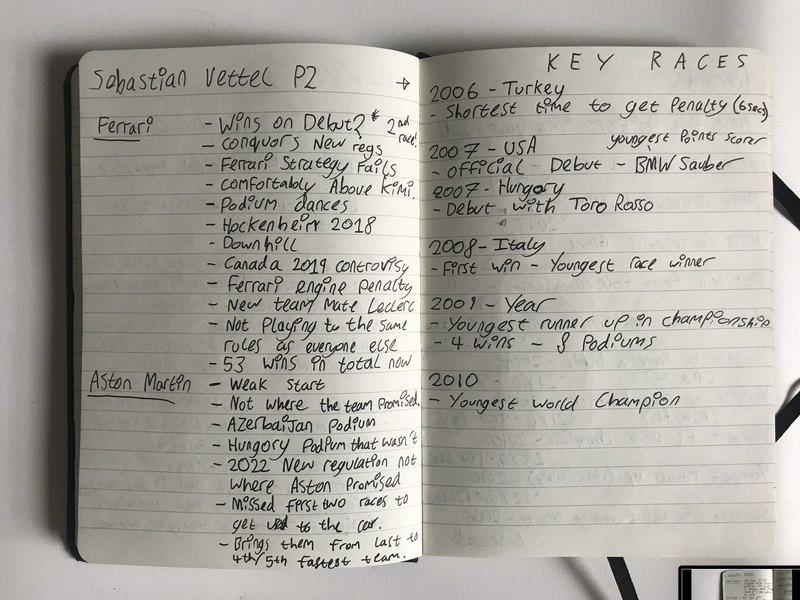 Sebastian Vettel P2 →
Ferrari - Wins on Debut? * 2nd race!
- conquors New regs
- Ferrari Strategy Fails
- comfortably Above Kimi.
- Podium dances
- Hockenheim 2018
- Downhill
- Canada 2019 controvisy
- Ferrari engine penalty
- New team Mate Leclerc
- Not Playing to the same
rules as everyone else
- 53 wins in total now
Aston Martin - Weak start
- Not where the team Promised.
- AZerbaiJan Podium
- Hungory Podium that wasn't
- 2022 New regulation not
where Aston Promised
- Missed first two races to
get used to the car.
- Brings them from last to
4th/5th fastest team.
KEY RACES
2006 - Turkey
- Shortest time to get Penalty (6sec)
2007 - USA youngest Points scorer
- official Debut - BMW Sauber
2007 - Hungary
- Debut with Toro Rosso
2008 - Italy
- First win - Youngest race winner
2009 - Year
- Youngest runner up in championship
- 4 wins - 8 Podiums
2010
- Youngest world Champion